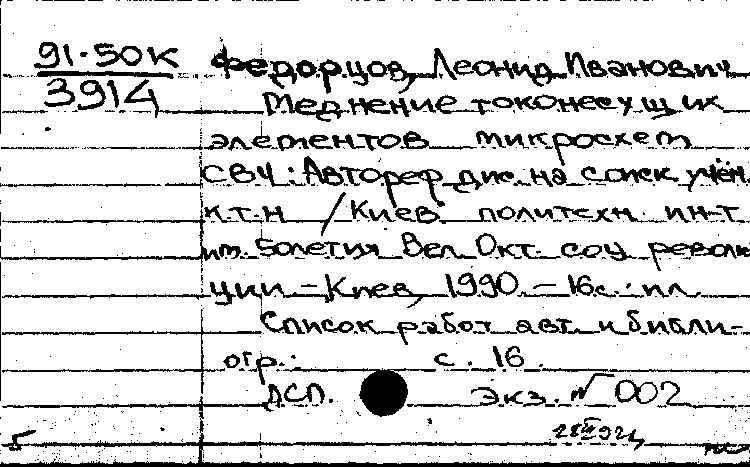 91-50К
3914
Федорцов, Леонид Иванович
Меднение токонесущих
элементов микросхем
СВЧ: Автореф дис. на соиск учён.
к.т.н / Киев. политехн. ин-т
им. 50летия Вел. Окт. соц револю
ции – Киев, 1990. – 16с.: ил
Список работ авт. и библи-
огр.: с. 16.
ДСП. Экз. № 002
5